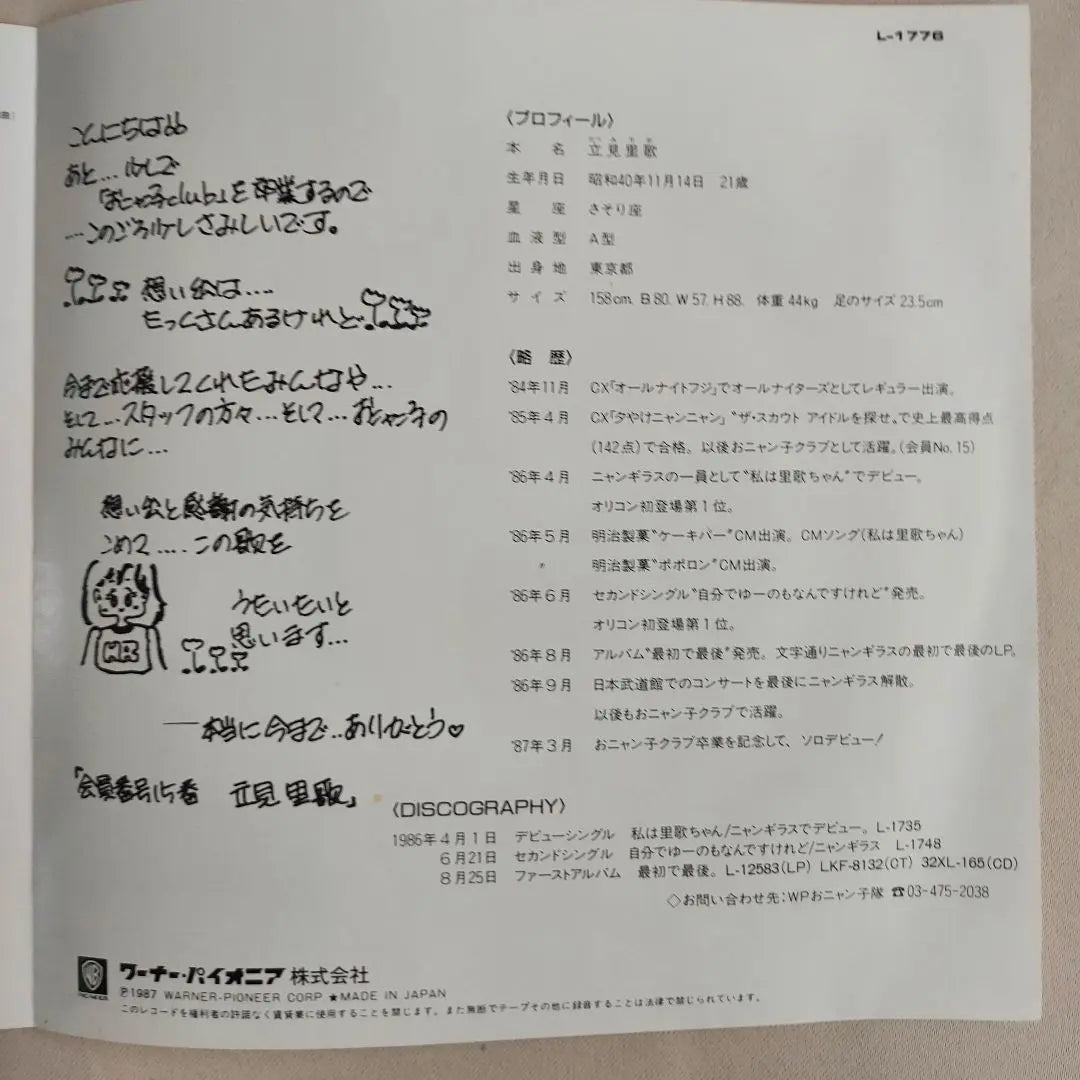 L-1776
こんにちは
あと…少しで
「おニャン子club」を卒業するので
…このごろ少しさみしいです。
想い出は….
たっくさんあるけれど
今まで応援してくれたみんなや…
そして…スタッフの方々…そして…おニャン子の
みんなに…
想い出と感謝の気持ちを
こめて….この歌を
うたいたいと
思います…
──本当に今まで..ありがとう♡
「会員番号15番 立見里歌」
〈プロフィール〉
本名 立見里歌
生年月日 昭和40年11月14日 21歳
星座 さそり座
血液型 A型
出身地 東京都
サイズ 158cm, B80, W57, H88, 体重44kg 足のサイズ23.5cm
〈略歴〉
'84年11月 CX「オールナイトフジ」でオールナイターズとしてレギュラー出演。
'85年4月 CX「夕やけニャンニャン」“ザ・スカウト アイドルを探せ„で史上最高得点
(142点)で合格。以後おニャン子クラブとして活躍。(会員No.15)
'86年4月 ニャンギラスの一員として“私は里歌ちゃん”でデビュー。
オリコン初登場第1位。
'86年5月 明治製菓“ケーキバー”CM出演。CMソング(私は里歌ちゃん)
〃 明治製菓“ポポロン”CM出演。
'86年6月 セカンドシングル“自分でゆーのもなんですけれど”発売。
オリコン初登場第1位。
'86年8月 アルバム“最初で最後”発売。文字通りニャンギラスの最初で最後のLP。
'86年9月 日本武道館でのコンサートを最後にニャンギラス解散。
以後もおニャン子クラブで活躍。
'87年3月 おニャン子クラブ卒業を記念して、ソロデビュー!
〈DISCOGRAPHY〉
1986年4月1日 デビューシングル 私は里歌ちゃん/ニャンギラスでデビュー。L-1735
6月21日 セカンドシングル 自分でゆーのもなんですけれど/ニャンギラス L-1748
8月25日 ファーストアルバム 最初で最後。L-12583(LP) LKF-8132(CT) 32XL-165(CD)
◇お問い合わせ先:WPおニャン子隊 ☎03-475-2038
WB PIONEER ワーナー・パイオニア株式会社
℗1987 WARNER-PIONEER CORP ★MADE IN JAPAN
このレコードを権利者の許諾なく賃貸業に使用することを禁じます。また無断でテープその他に録音することは法律で禁じられています。